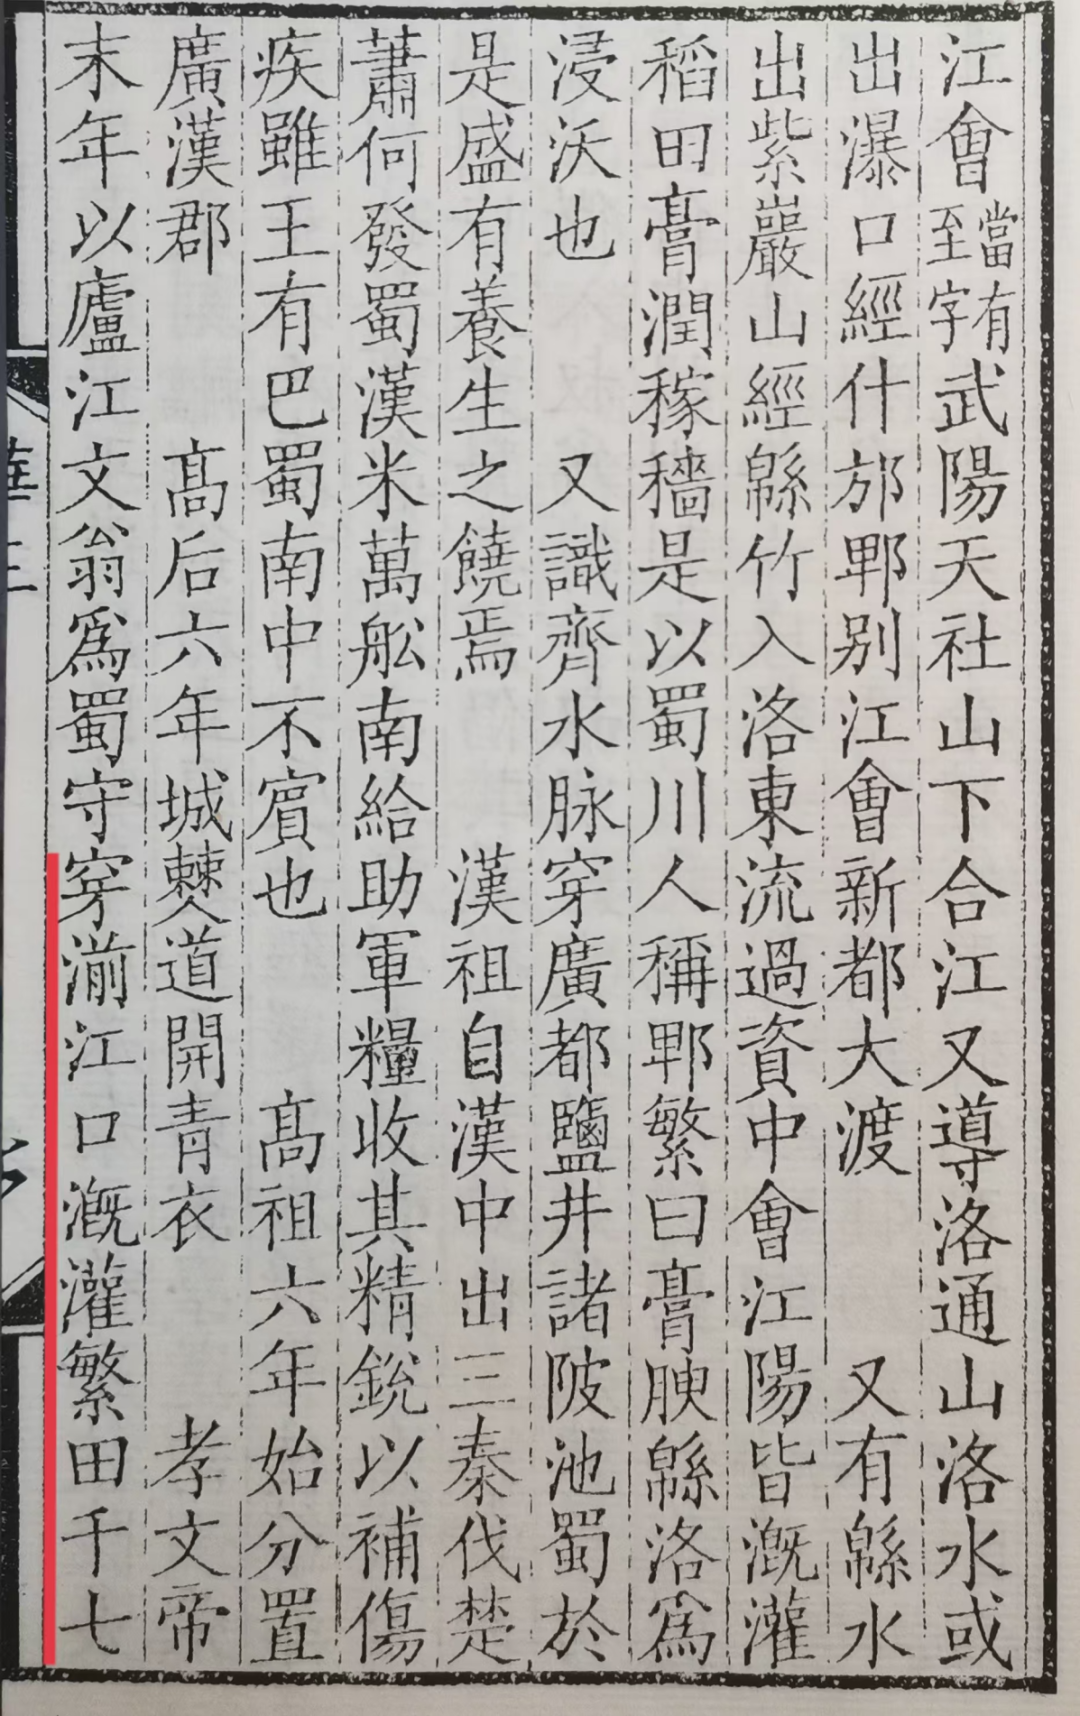 江會當有至字武陽天社山下合江又導洛通山洛水或
出瀑口經什邡郫别江會新都大渡　又有緜水
出紫巖山經緜竹入洛東流過資中會江陽皆溉灌
稻田膏潤稼穡是以蜀川人稱郫繁曰膏腴緜洛爲
浸沃也　又識齊水脉穿廣都鹽井諸陂池蜀於
是盛有養生之饒焉　漢祖自漢中出三秦伐楚
蕭何發蜀漢米萬舩南給助軍糧收其精銳以補傷
疾雖王有巴蜀南中不賓也　髙祖六年始分置
廣漢郡　髙后六年城僰道開青衣　孝文帝
末年以廬江文翁爲蜀守穿湔江口溉灌繁田千七